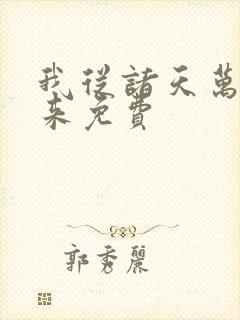 我從諸天萬
來免費
郭秀麗